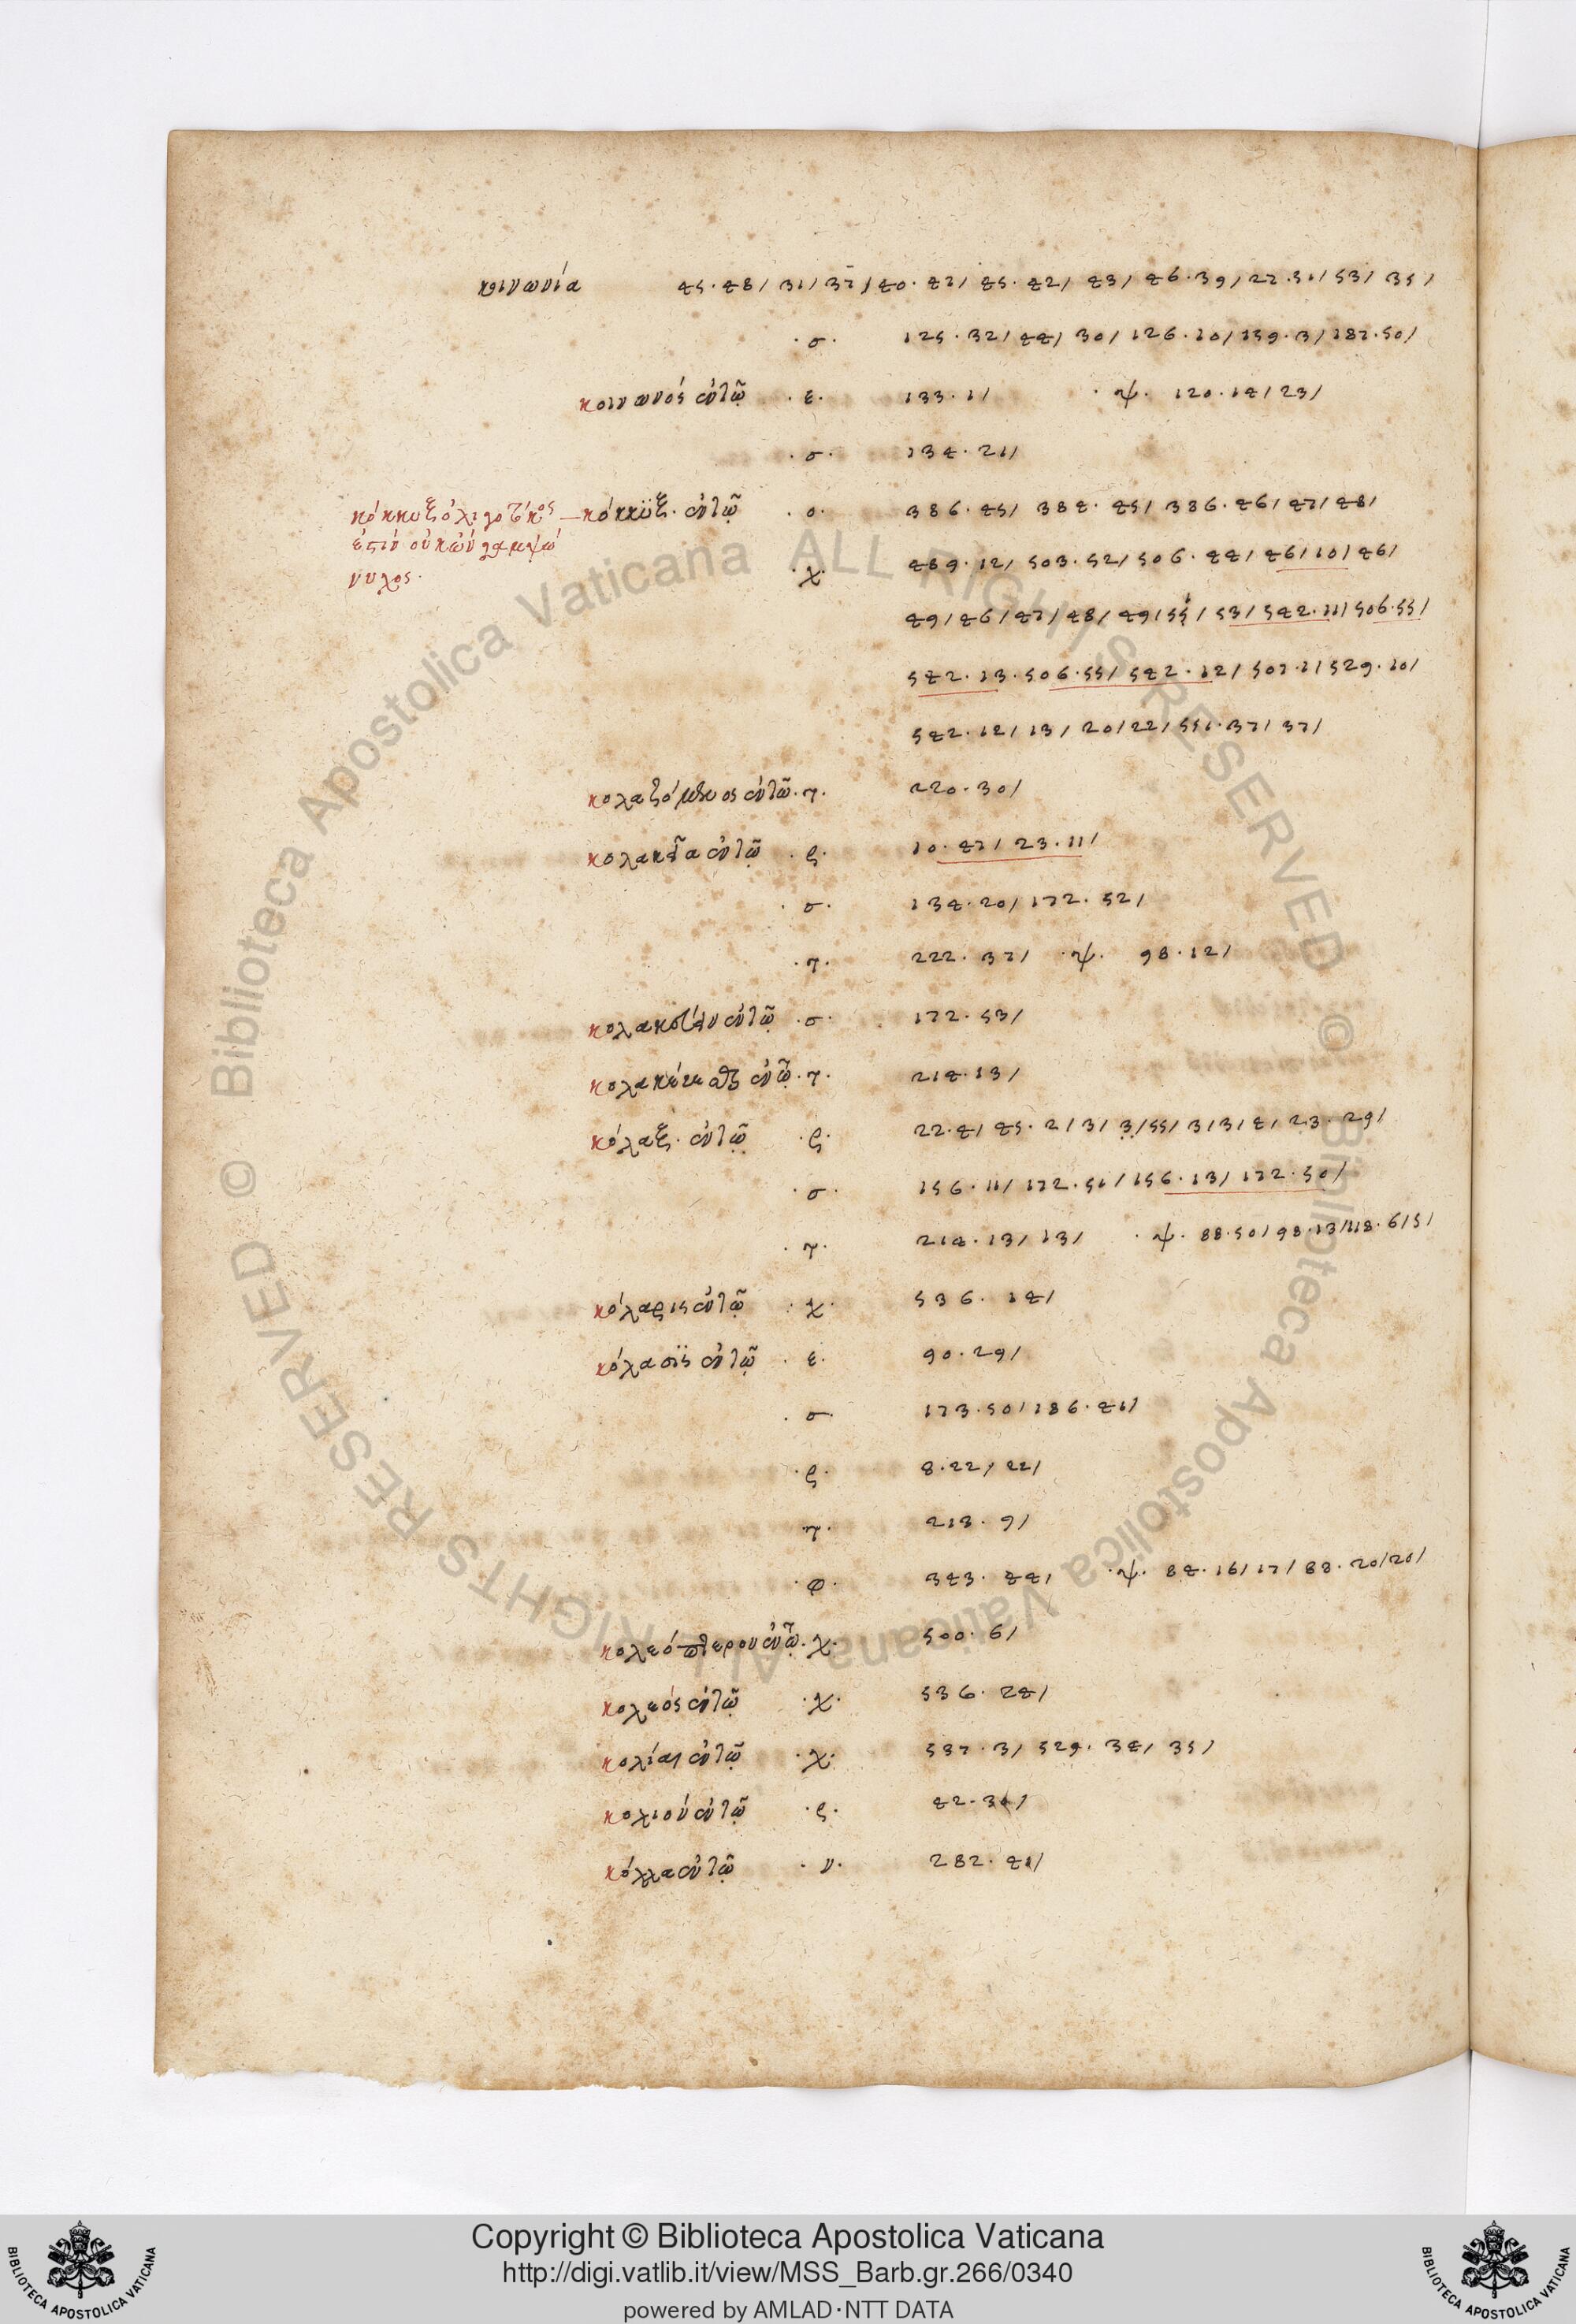 κοινωνία 45.48/ 31/ 37/ 40.47/ 45.42/ 43/ 46.39/ 27.31/ 53/ 35/
.σ. 125.32/ 44/ 30/ 126.10/ 159.3/ 187.50/
κοινωνός ἐν τῷ .ε. 133.1/ .ψ. 120.14/ 23/
.σ. 134.21/
κόκκυξ ὀλιγοτόκος — κόκκϋξ. ἐν τῷ .ο. 386.45/ 384.45/ 386.46/ 47/ 48/
ἐστὶν οὐκ ὢν γαμψώ
νυχος.
.χ. 489.12/ 503.52/ 506.44/ 46/ 10/ 46/
49/ 46/ 47/ 48/ 49/ 55/ 53/ 542.11/ 506.55/
542.13.506.55/ 542.12/ 507.1/ 529.10/
542.12/ 13/ 20/ 22/ 551.37/ 37/
κολαζόμενος ἐν τῷ .τ. 220.30/
κολακεία ἐν τῷ .ρ. 10.47/ 23.11/
.σ. 134.20/ 172.52/
.τ. 222.37/ .ψ. 98.12/
κολακεύειν ἐν τῷ .σ. 172.53/
ἐν τῷ .τ. 214.13/
κόλαξ. ἐν τῷ .ρ. 22.4/ 45.2/ 3/ 3/ 55/ 3/ 3/ 4/ 23.29/
.σ. 156.11/ 172.51/ 156.13/ 172.50/
.τ. 214.13/ 13/ .ψ. 88.50/ 98.13/ 118.6/ 5/
κόλαρις ἐν τῷ .χ. 536.14/
κόλασϊς ἐν τῷ .ε. 90.29/
.σ. 173.50/ 186.41/
.ρ. 8.22/ 22/
.τ. 218.9/
.φ. 343.44/ .ψ. 84.16/ 17/ 88.20/ 20/
κολεόπτερον ἐν τῷ .χ. 500.6/
κολεός ἐν τῷ .χ. 536.24/
κολίαι ἐν τῷ .χ. 537.3/ 529.34/ 35/
κολιόν ἐν τῷ .ρ.
κόλλα ἐν τῷ .ν. 282.41/
Copyright © Biblioteca Apostolica Vaticana
http://digi.vatlib.it/view/MSS_Barb.gr.266/0340
powered by AMLAD·NTT DATA
BIBLIOTECA APOSTOLICA VATICANA
BIBLIOTECA APOSTOLICA VATICANA
© Biblioteca Apostolica Vaticana ALL RIGHTS RESERVED
© Biblioteca Apostolica Vaticana ALL RIGHTS RESERVED